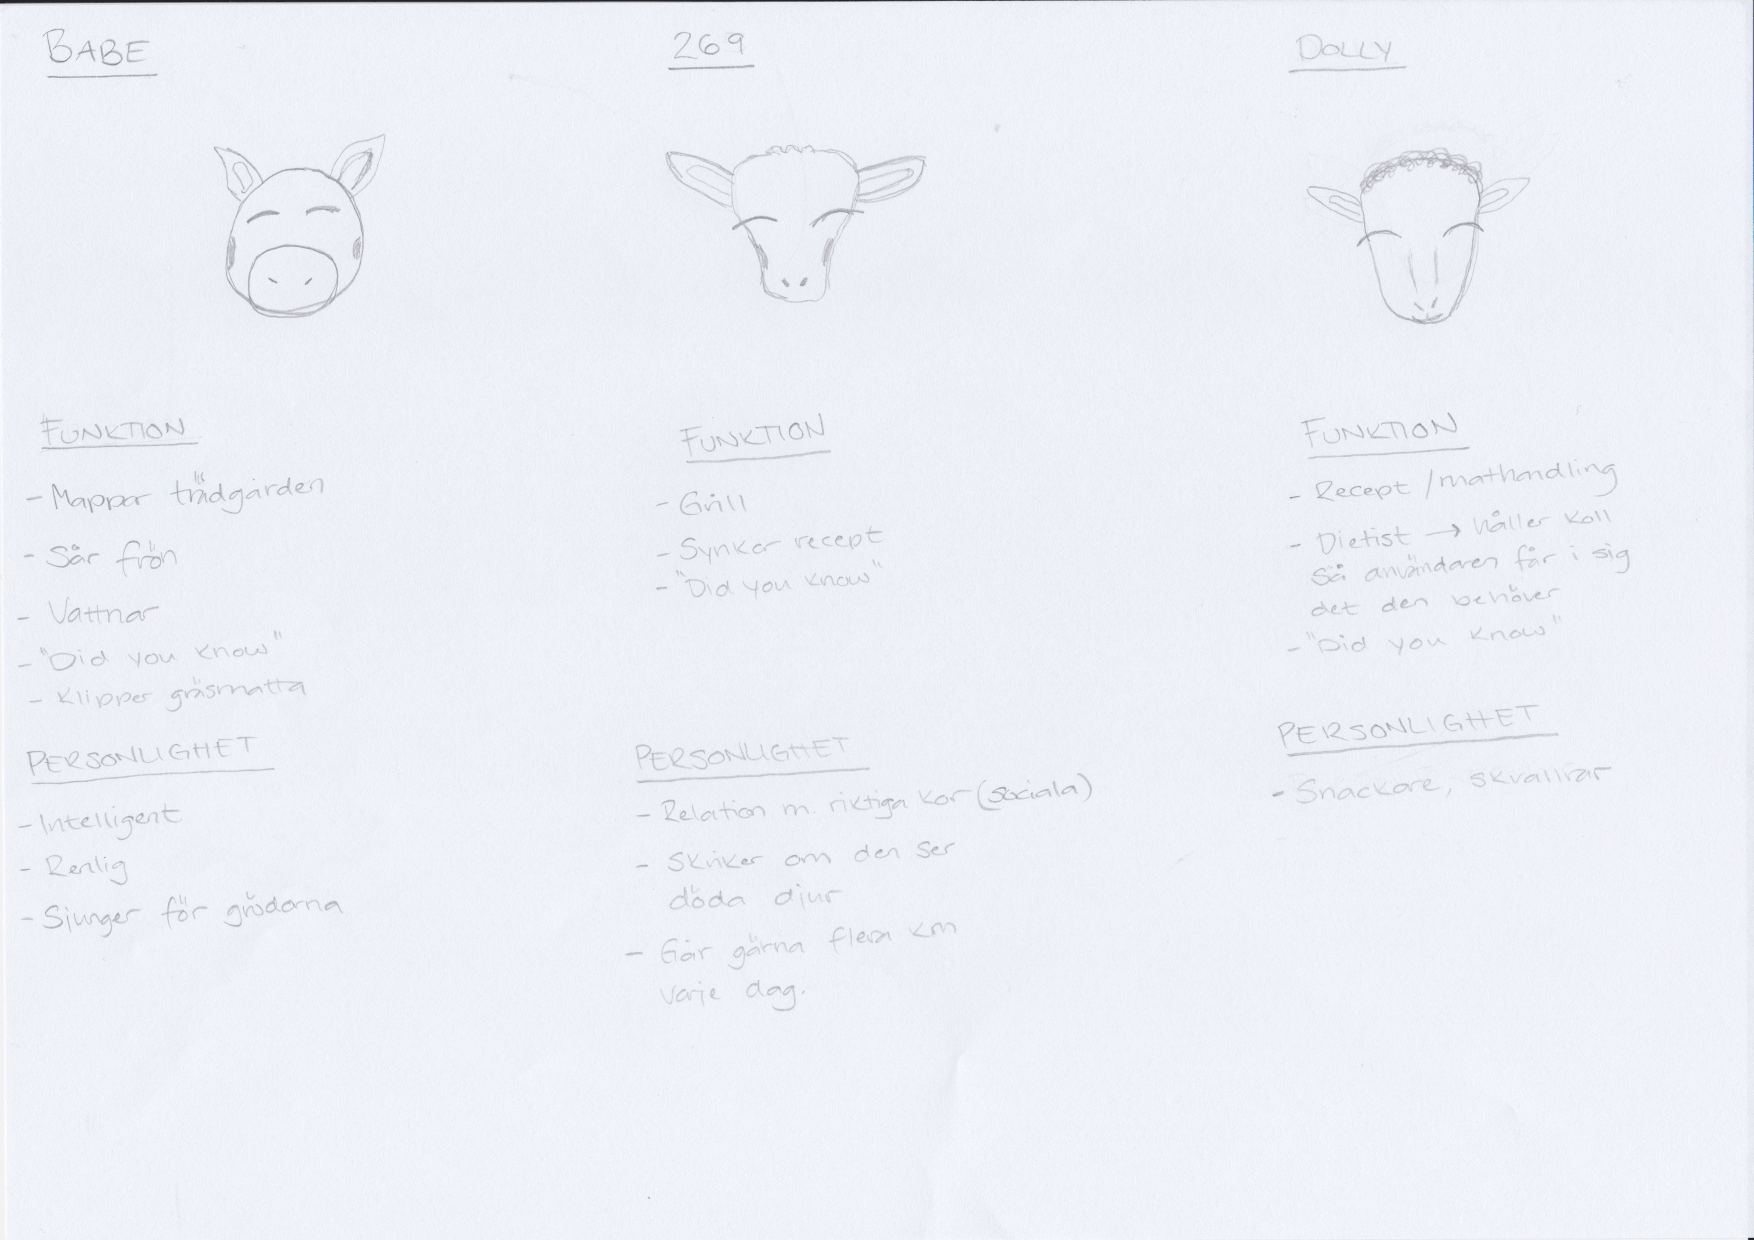 BABE
FUNKTION
- Mappar trädgården
- Sår frön
- Vattnar
- "Did you know"
- Klipper gräsmatta
PERSONLIGHET
- Intelligent
- Renlig
- Sjunger för grödorna
269
FUNKTION
- Grill
- Synkar recept
- "Did you know"
PERSONLIGHET
- Relation m. riktiga kor (sociala)
- Skriker om den ser
döda djur
- Går gärna flera km
varje dag.
DOLLY
FUNKTION
- Recept /mathandling
- Dietist → håller koll
så användaren får i sig
det den behöver
- "Did you know"
PERSONLIGHET
- Snackare, skvallrar